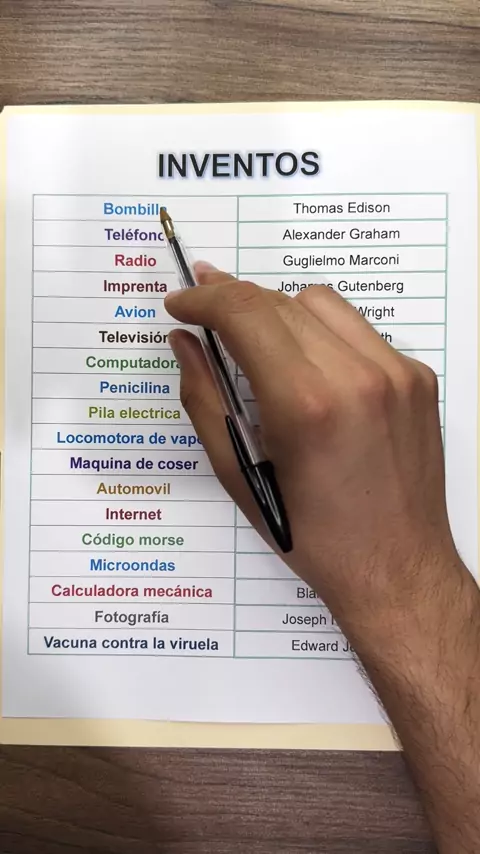 INVENTOS
Bombilla Thomas Edison
Teléfono Alexander Graham
Radio Guglielmo Marconi
Imprenta Gutenberg
Avion Wright
Televisión
Computadora
Penicilina
Pila electrica
Locomotora de
Maquina de coser
Automovil
Internet
Código morse
Microondas
Calculadora mecánica
Fotografía Joseph
Vacuna contra la viruela Edward